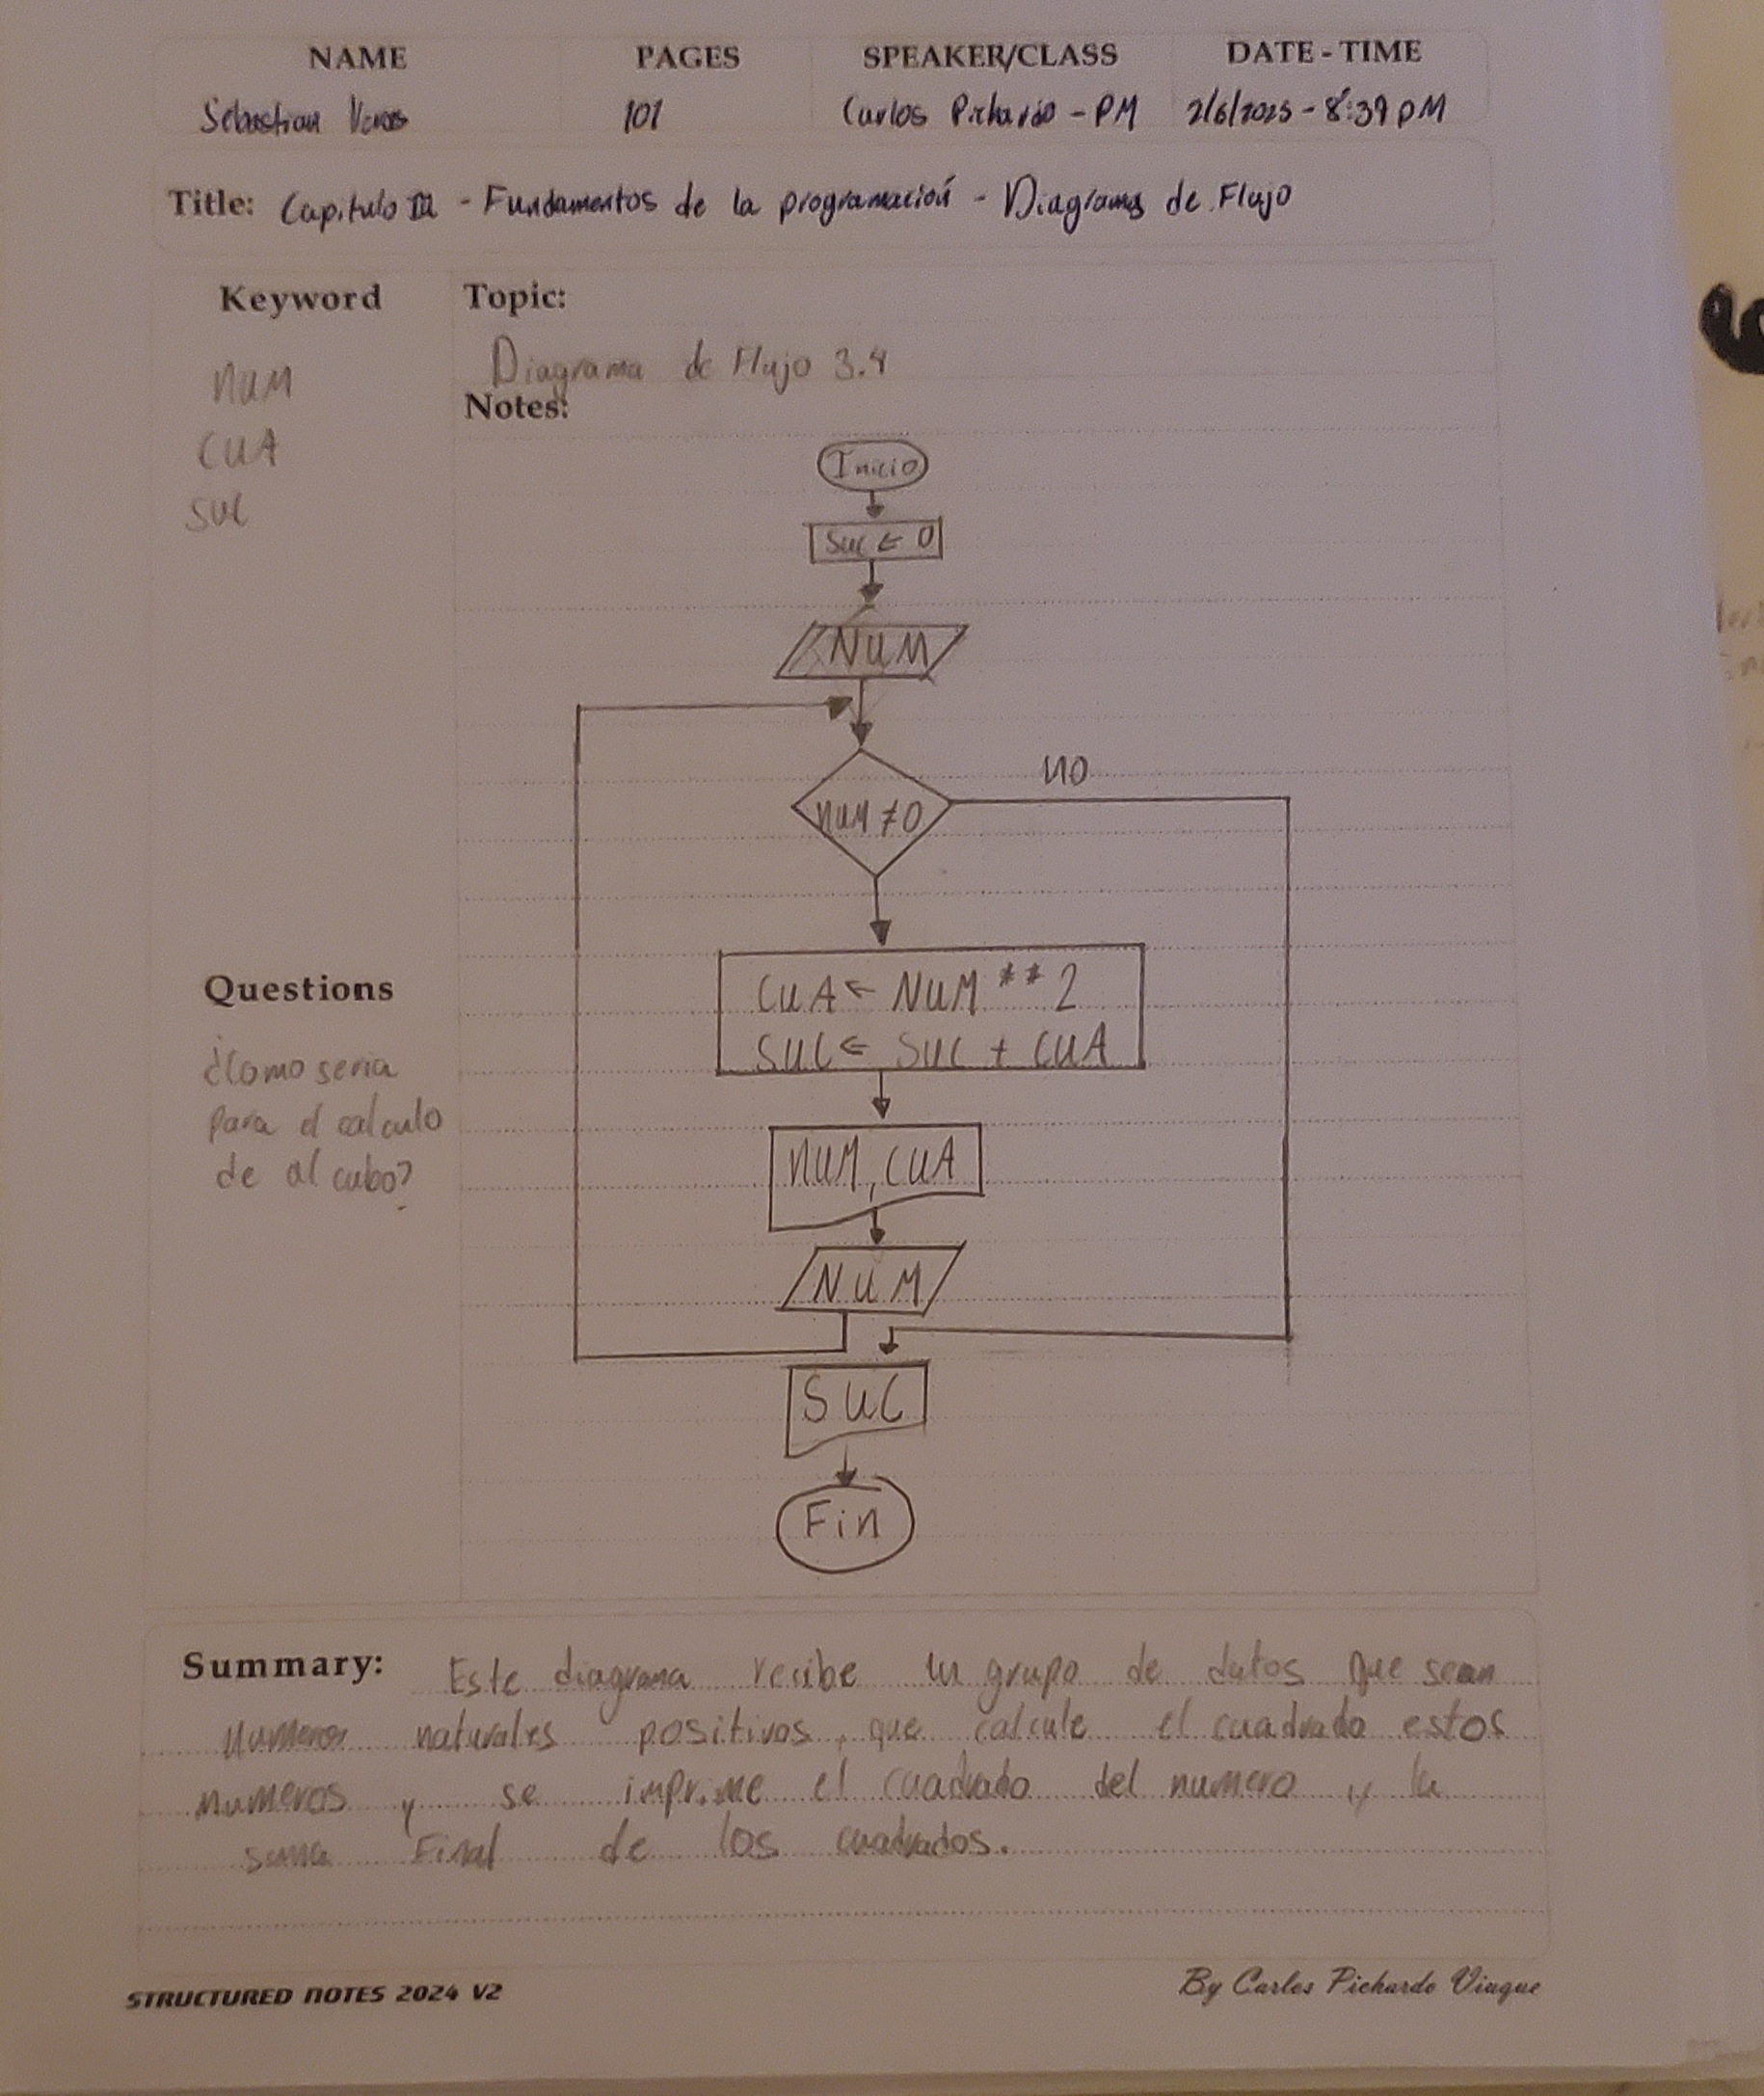 NAME PAGES SPEAKER/CLASS DATE - TIME
Sebastian 101 Carlos Pichardo - PM 2/6/2025 - 8:39 PM
Title: Capitulo III - Fundamentos de la programación - Diagramas de Flujo
Keyword
NUM
CUA
SUC
Topic:
Diagrama de Flujo 3.4
Notes:
Inicio
SUC ← 0
NUM
NUM ≠ 0
NO
CUA ← NUM ** 2
SUC ← SUC + CUA
NUM, CUA
NUM
SUC
Fin
Questions
¿Como seria
para el calculo
de al cubo?
Summary: Este diagrama recibe un grupo de datos que sean
numeros naturales positivos, que calcule el cuadrado estos
numeros y se imprime el cuadrado del numero y la
suma Final de los cuadrados.
STRUCTURED NOTES 2024 V2
By Carlos Pichardo Viuque